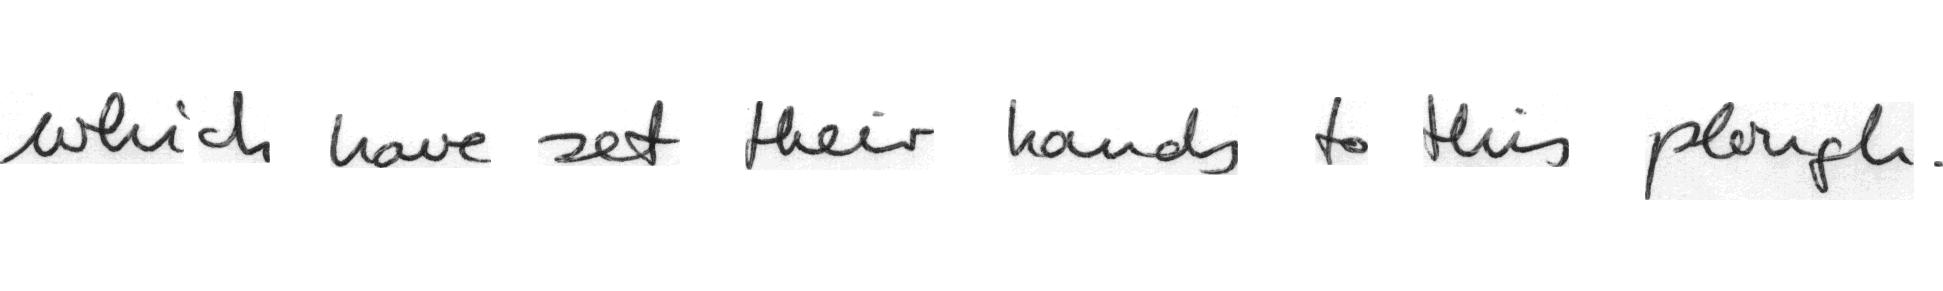 which have set their hands to this plough.